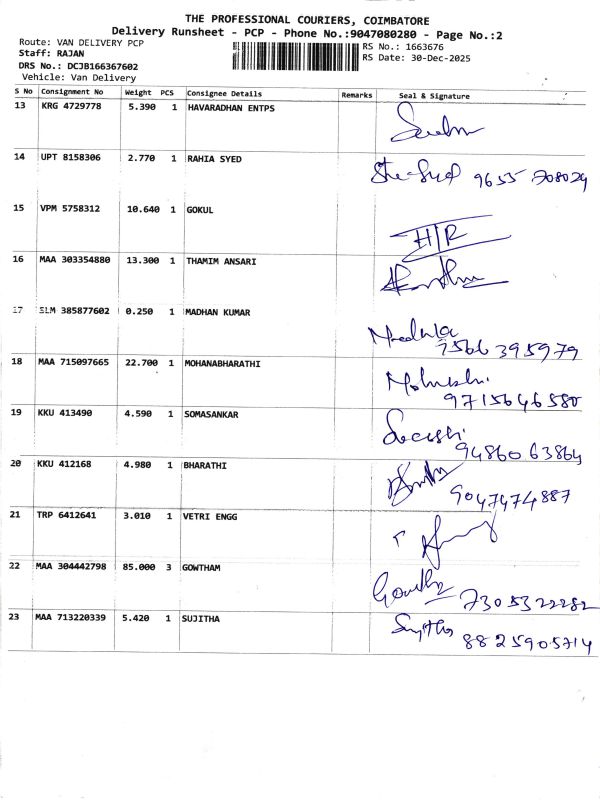 THE PROFESSIONAL COURIERS, COIMBATORE
Delivery Runsheet - PCP - Phone No.:9047080280 - Page No.:2
Route: VAN DELIVERY PCP
RS No.: 1663676
Staff: RAJAN
RS Date: 30-Dec-2025
DRS No.: DCJB166367602
Vehicle: Van Delivery
S No Consignment No Weight PCS Consignee Details Remarks Seal & Signature
13 KRG 4729778 5.390 1 HAVARADHAN ENTPS
14 UPT 8158306 2.770 1 RAHIA SYED
15 VPM 5758312 10.640 1 GOKUL
H/R
16 MAA 303354880 13.300 1 THAMIM ANSARI
17 SLM 385877602 0.250 1 MADHAN KUMAR
7566395979
18 MAA 715097665 22.700 1 MOHANABHARATHI
9715646580
19 KKU 413490 4.590 1 SOMASANKAR
9486063864
20 KKU 412168 4.980 1 BHARATHI
9047474887
21 TRP 6412641 3.010 1 VETRI ENGG
22 MAA 304442798 85.000 3 GOWTHAM
7305322282
23 MAA 713220339 5.420 1 SUJITHA
Sujitha
8825905714